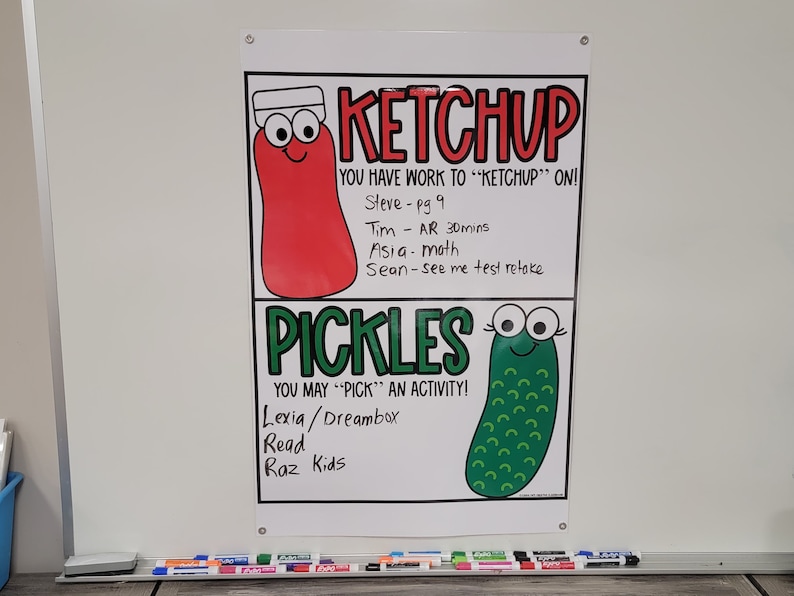 KETCHUP
YOU HAVE WORK TO “KETCHUP” ON!
Steve - pg 9
Tim - AR 30mins
Asia - math
Sean - see me test retake
PICKLES
YOU MAY “PICK” AN ACTIVITY!
Lexia/Dreambox
Read
Raz Kids
EXPO
EXPO
EXPO